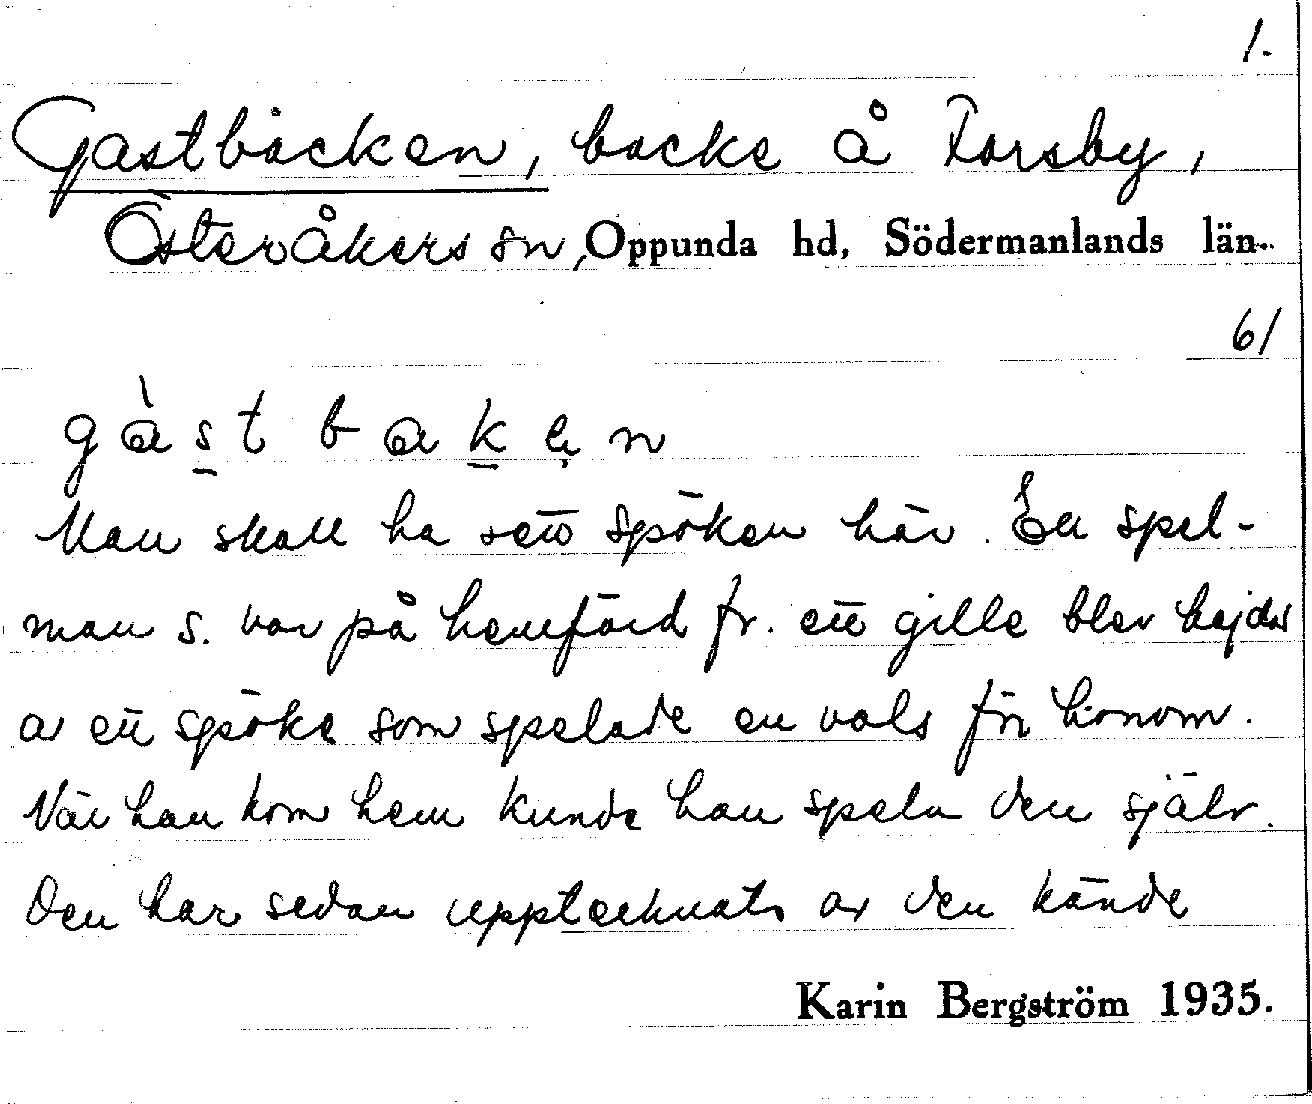 1.
Gastbacken, backe å Forsby,
Österåkers sn, Oppunda hd, Södermanlands län.
61
gàst bakẹn
Man skall ha sett spöken här. En spel-
man s. var på hemfärd fr. ett gille blev hejdad
av ett spöke som spelade en vals för honom.
När han kom hem kunde han spela den själv.
Den har sedan upptecknats av den kände
Karin Bergström 1935.